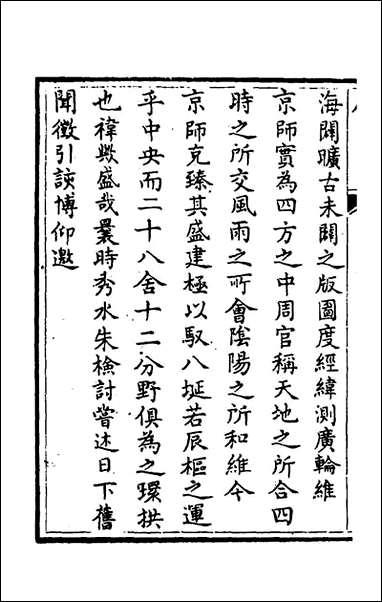 海闢曠古未闢之版圖度經緯測廣輪維
京師實為四方之中周官稱天地之所合四
時之所交風雨之所會隂陽之所和維今
京師克臻其盛建極以馭八埏若辰樞之運
乎中央而二十八舍十二分野俱為之環拱
也禕歟盛哉曩時秀水朱檢討嘗述日下舊
聞徵引詼博仰邀